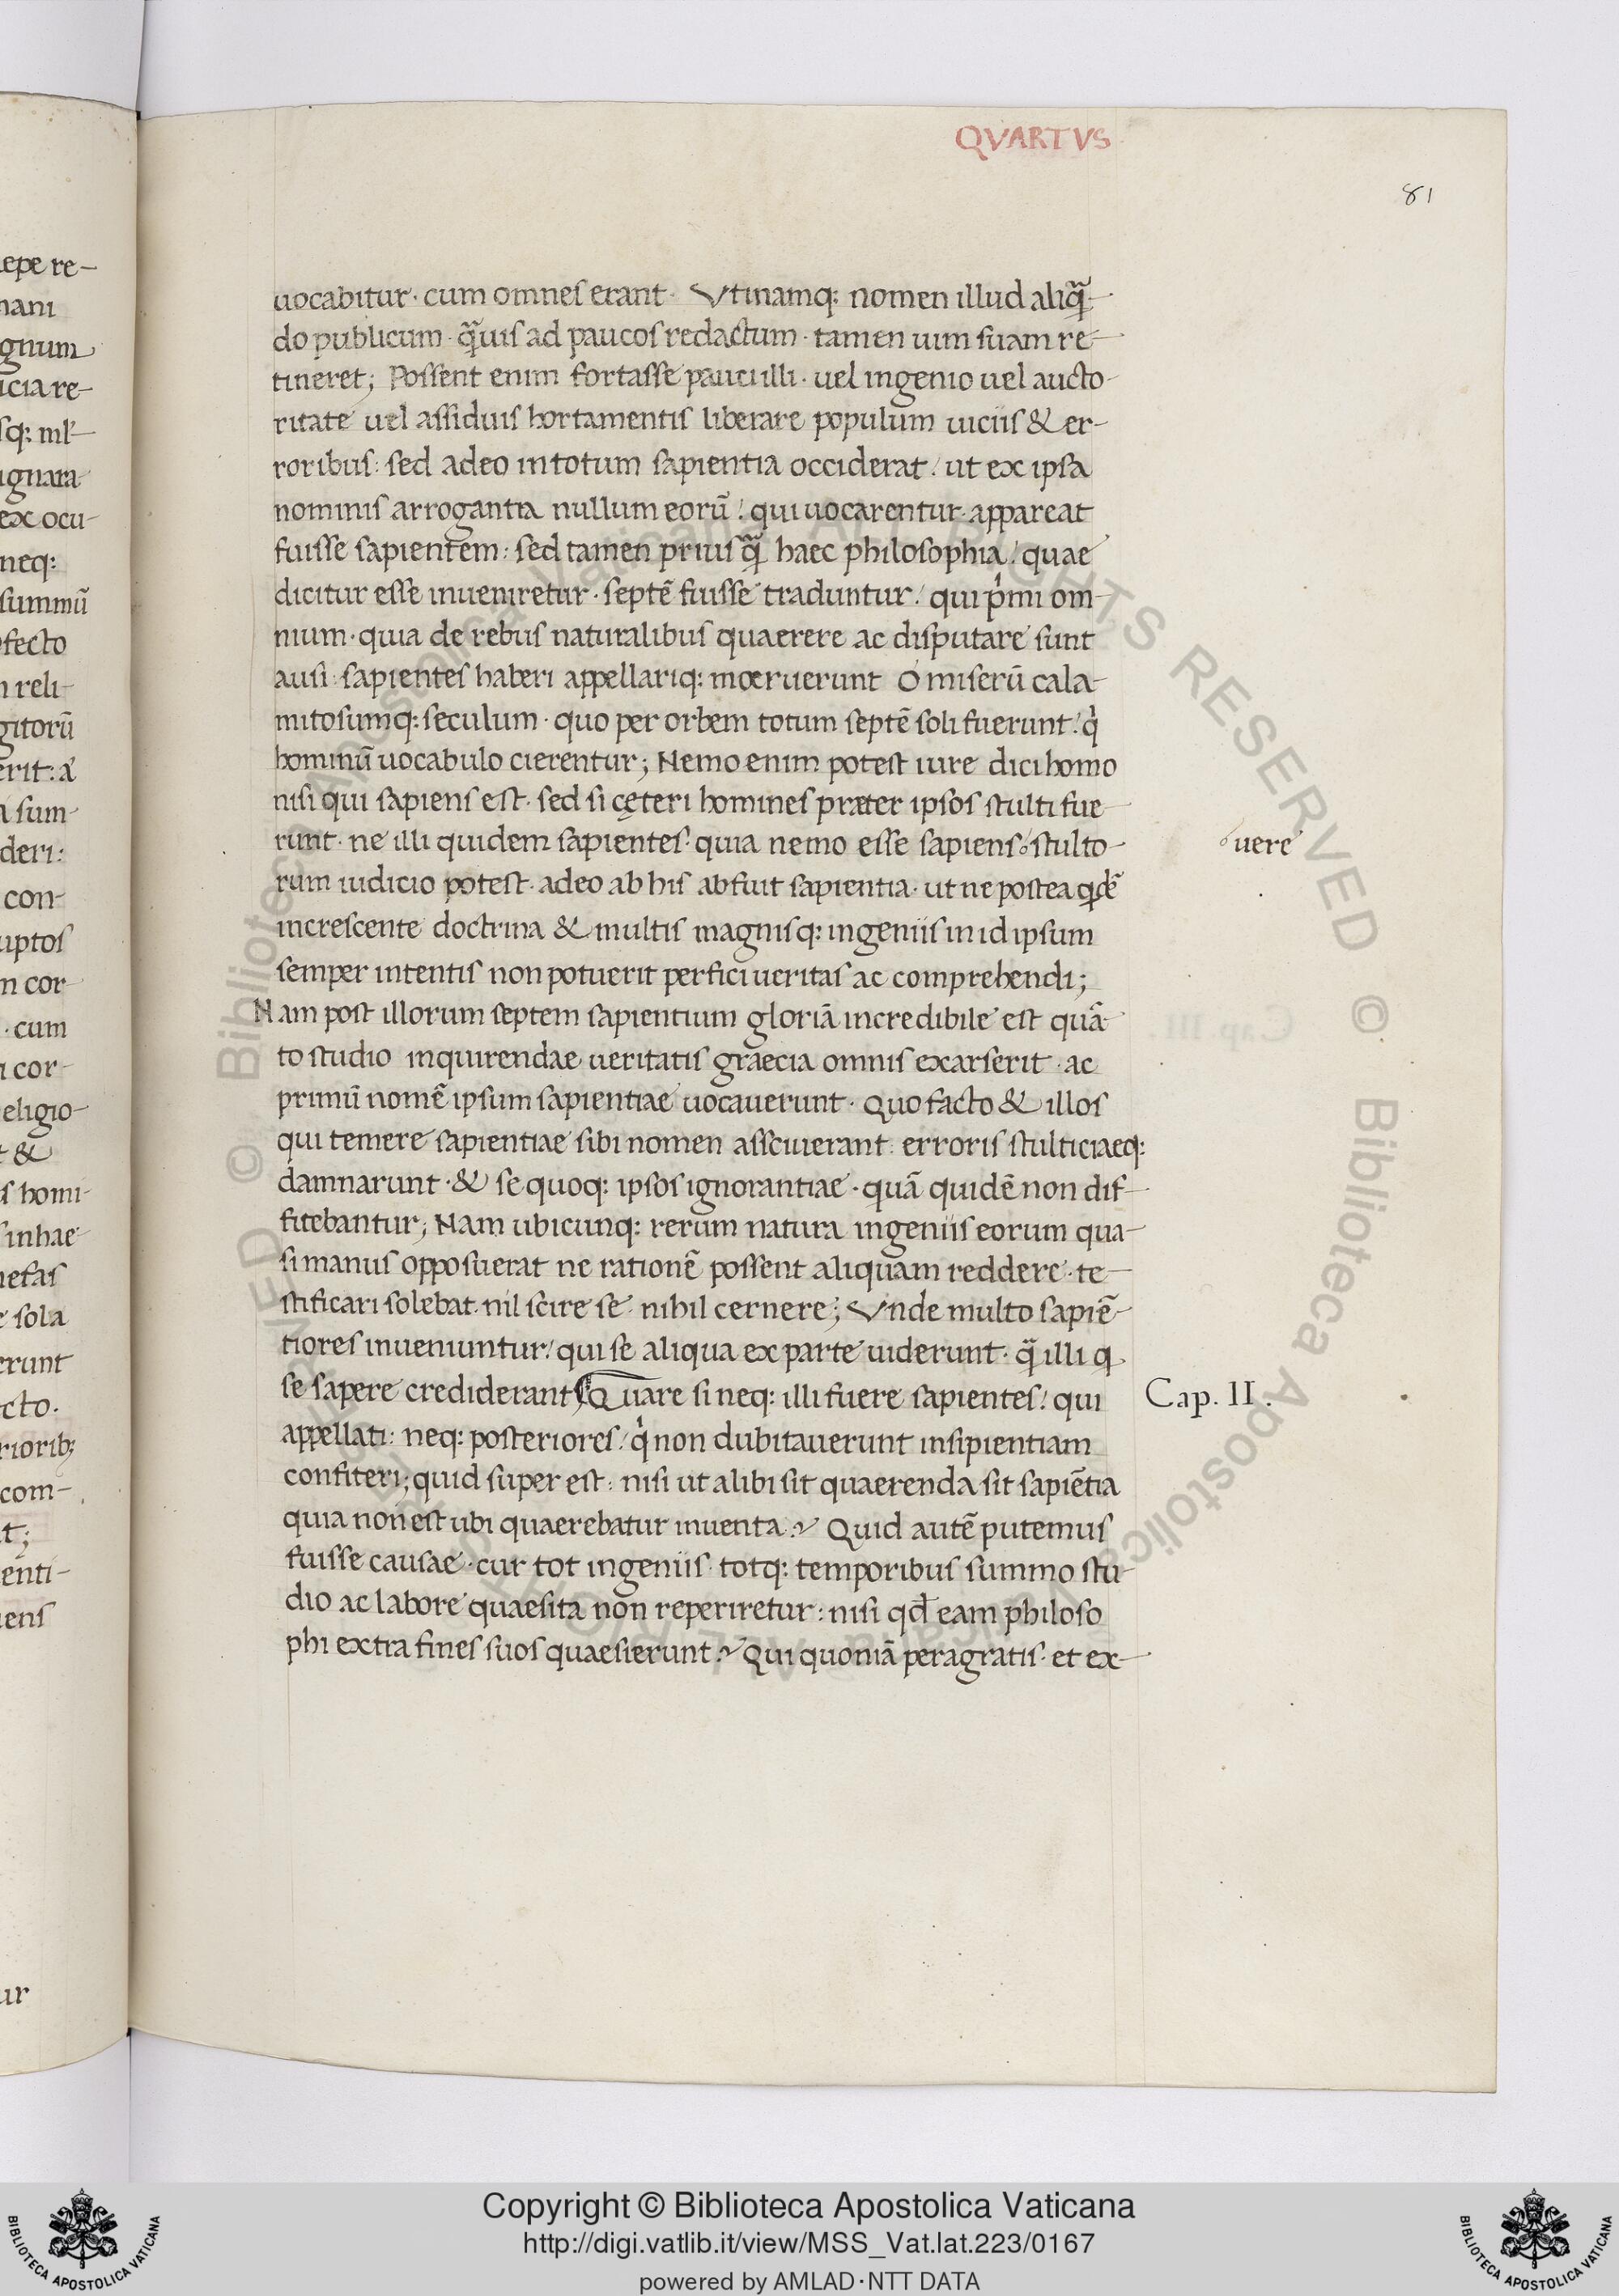 QVARTVS
81
uocabitur · cum omnes erant · Vtinamq: nomen illud aliqꝫ̃-
do publicum · qꝫ̃uis ad paucos redactum · tamen uim suam re-
tineret; Possent enim fortasse pauci illi · uel ingenio uel aucto-
ritate uel assiduis hortamentis liberare populum uiciis & er-
roribus: sed adeo in totum sapientia occiderat / ut ex ipsa
nominis arrogantia nullum eorũ / qui uocarentur · appareat
fuisse sapientem: sed tamen prius qꝫ̃ haec philosophia / quae
dicitur esse inueniretur · septẽ fuisse traduntur / qui pⁱmi om
nium · quia de rebus naturalibus quaerere ac disputare sunt
ausi: sapientes haberi appellariq: moeruerunt O miserũ cala-
mitosumq: seculum · quo per orbem totum septẽ soli fuerunt / qⁱ
hominũ uocabulo cierentur; Nemo enim potest iure dici homo
nisi qui sapiens est · sed si cęteri homines praeter ipsos stulti fue-
runt · ne illi quidem sapientes · quia nemo esse sapiens stulto-
uere
rum iudicio potest · adeo ab his abfuit sapientia · ut ne postea qdẽ
increscente doctrina & multis magnisq: ingeniis in id ipsum
semper intentis non potuerit perfici ueritas ac comprehendi;
Nam post illorum septem sapientium gloriã incredibile est quã-
to studio inquirendae ueritatis graecia omnis exarserit · ac
primũ nomẽ ipsum sapientiae uocauerunt · Quo facto & illos
qui temere sapientiae sibi nomen assciuerant: erroris stulticiaeq:
damnarunt · & se quoq: ipsos ignorantiae · quã quidẽ non dif-
fitebantur; Nam ubicunq: rerum natura ingeniis eorum qua-
si manus opposuerat ne rationẽ possent aliquam reddere · te-
stificari solebat · nil scire se · nihil cernere; Vnde multo sapiẽ-
tiores inueniuntur / qui se aliqua ex parte uiderunt · qꝫ̃ illi q
se sapere crediderant Quare si neq: illi fuere sapientes / qui
Cap. II.
appellati: neq: posteriores / qⁱ non dubitauerunt insipientiam
confiteri; quid super est: nisi ut alibi sit quaerenda sit sapiẽtia
quia non est ubi quaerebatur inuenta? Quid autẽ putemus
fuisse causae · cur tot ingeniis · totq: temporibus summo stu-
dio ac labore quaesita non reperiretur: nisi qđ eam philoso
phi extra fines suos quaesierunt? Qui quoniã peragratis · et ex-
epe re-
nani
gnum
icia re-
sq: nl'-
ignara
ex ocu-
neq:
summũ
fecto
reli-
gitorũ
erit: a
sum-
deri:
con-
uptos
cor-
· cum
cor-
eligio-
t &
s homi-
s inhae
nefas
sola
erunt
cto.
riorib;
com-
t;
enti-
iens
ur
© Biblioteca Apostolica Vaticana ALL RIGHTS RESERVED © Biblioteca Apostolica Vaticana ALL RIGHTS RESERVED
Copyright © Biblioteca Apostolica Vaticana
http://digi.vatlib.it/view/MSS_Vat.lat.223/0167
powered by AMLAD·NTT DATA
BIBLIOTECA APOSTOLICA VATICANA
BIBLIOTECA APOSTOLICA VATICANA